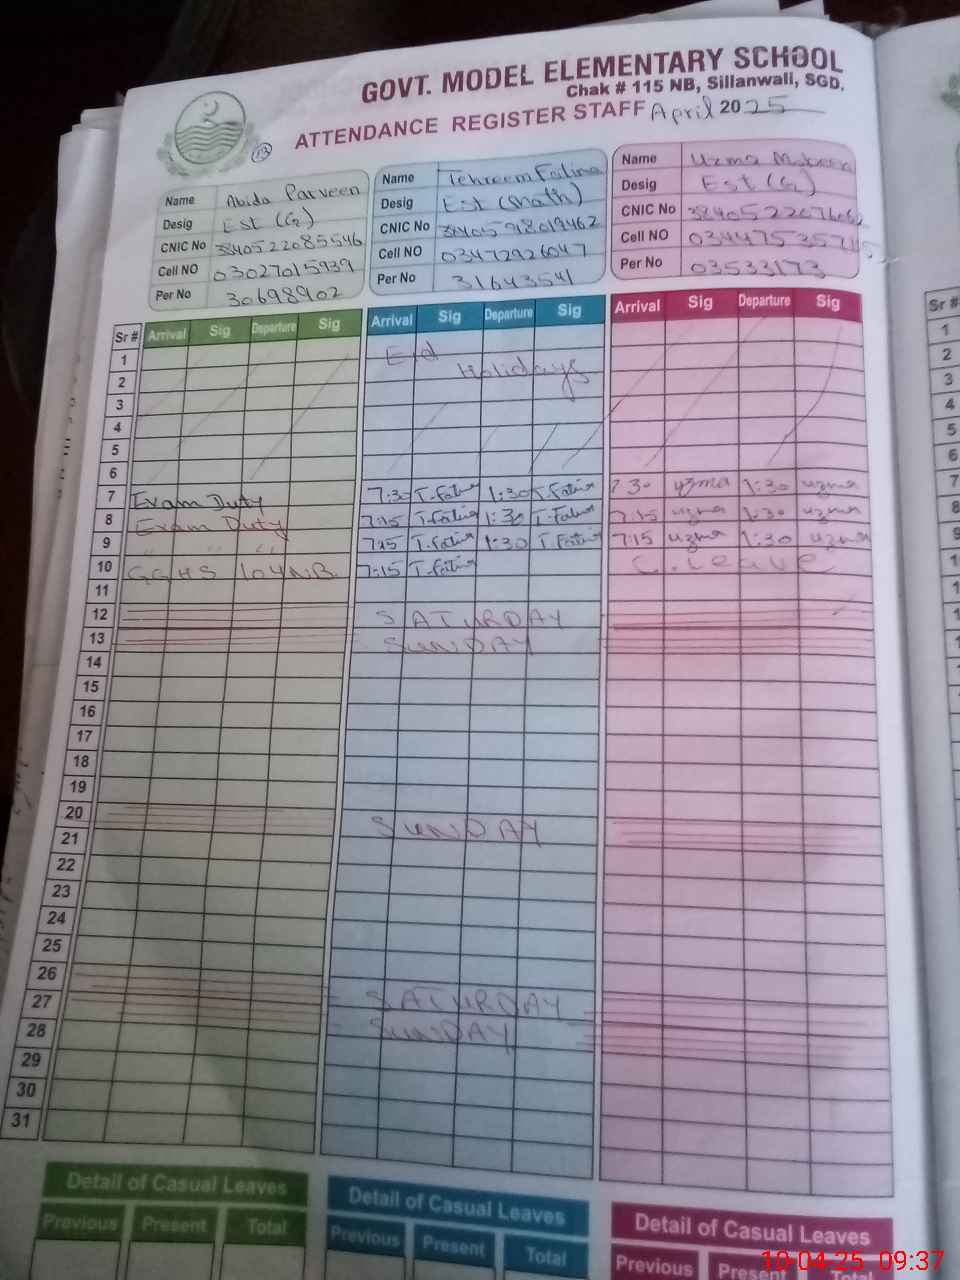 GOVT. MODEL ELEMENTARY SCHOOL
Chak # 115 NB, Sillanwali, SGD.
ATTENDANCE REGISTER STAFF April 2025
13
Name Abida Parveen
Desig Est (G)
CNIC No 3840522085546
Cell NO 03027015939
Per No 30698902
Name Tehreem Fatima
Desig Est (Math)
CNIC No
Cell NO 03472926047
Per No 31643541
Name Uzma
Desig Est (G)
CNIC No
Cell NO
Per No 03533173
Sr # Arrival Sig Departure Sig Arrival Sig Departure Sig Arrival Sig Departure Sig
1 Eid
2 Holidays
3
4
5
6
7 Exam Duty 7:30 T.Fatima 1:30 T.Fatima 7 30 uzma 1:30 uzma
8 Exam Duty 7:15 T.Fatima 1:30 T.Fatima 7:15 uzma 1:30 uzma
9 " " " 7:15 T.Fatima 1:30 T.Fatima 7:15 uzma 1:30 uzma
10 GGHS 104NB 7:15 T.Fatima C.Leave
11
12 SATURDAY
13 SUNDAY
14
15
16
17
18
19
20 SUNDAY
21
22
23
24
25
26 SATURDAY
27 SUNDAY
28
29
30
31
Detail of Casual Leaves Detail of Casual Leaves Detail of Casual Leaves
Previous Present Total Previous Present Total Previous Present Total
Sr #
1
2
3
4
5
6
7
8
9
10-04-25 09:37